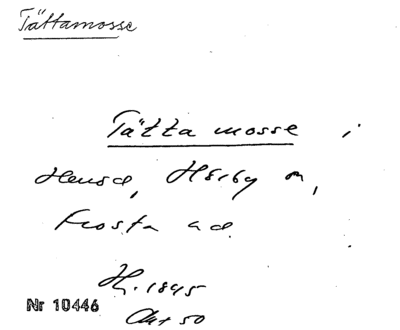 Tättamosse
Tätta mosse i
Hörby sn,
Frosta hd.
1845
Nr 10446
50